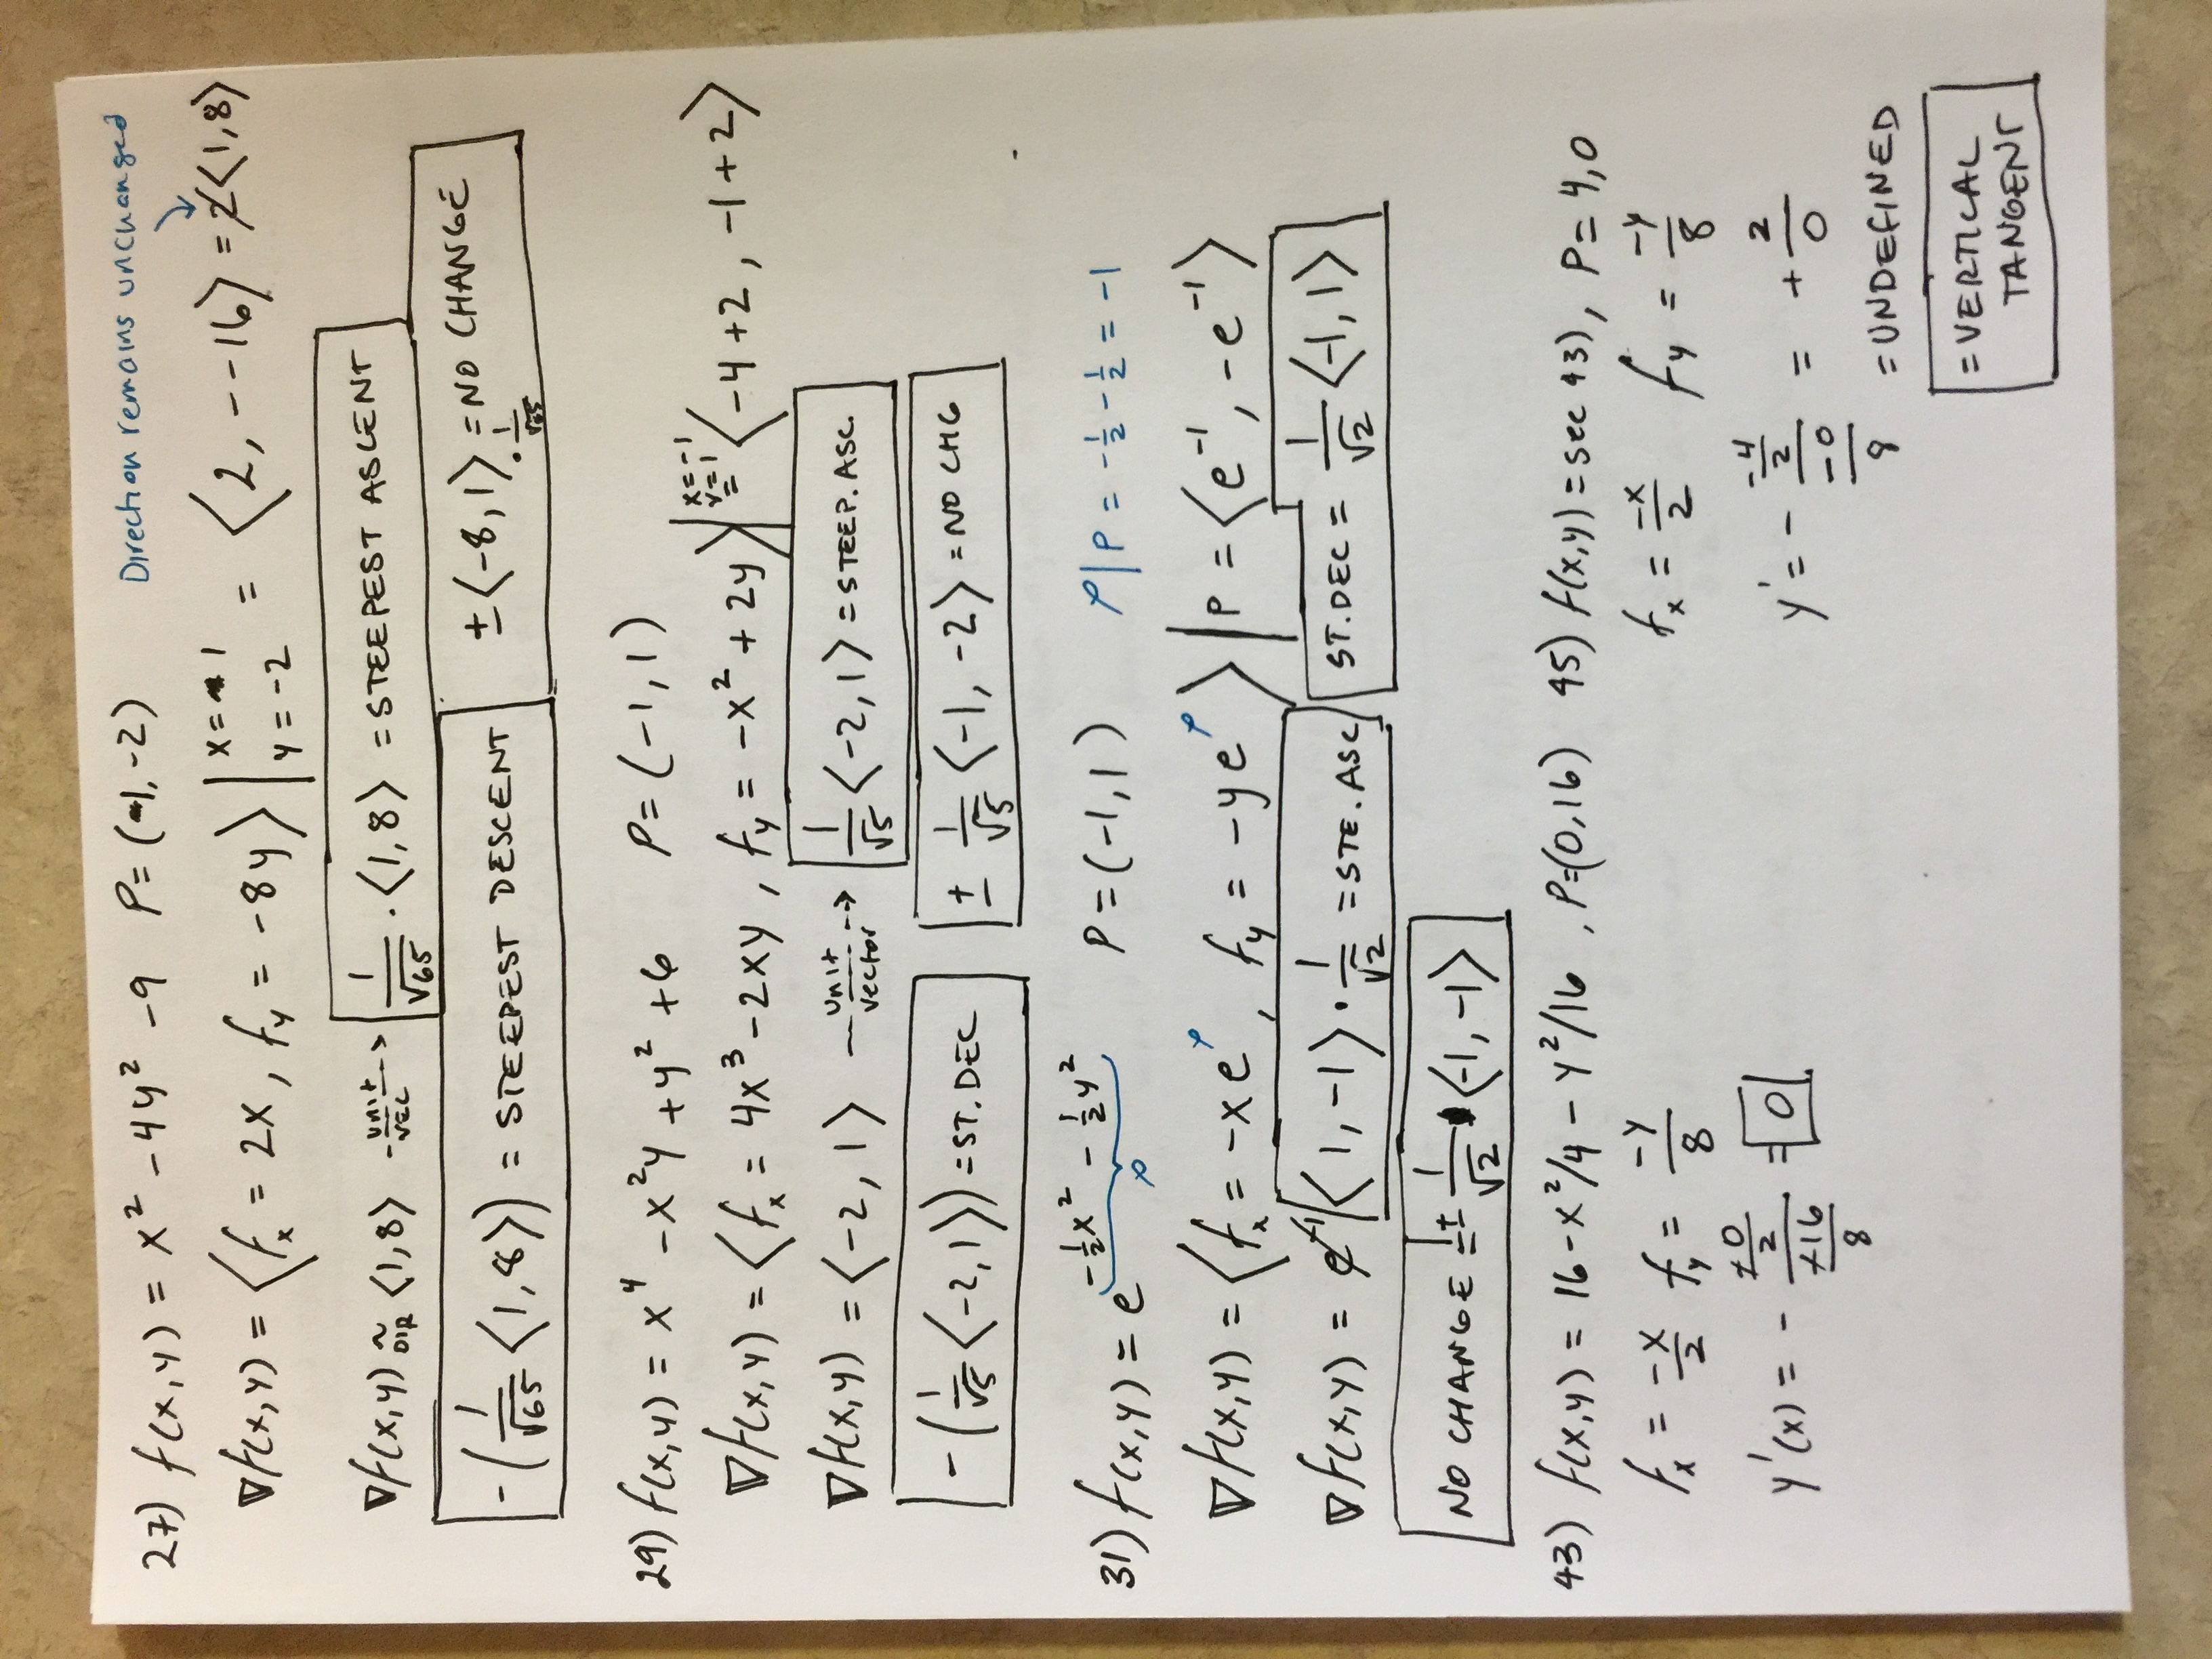 Direction remains unchanged
27) f(x,y) = x² - 4y² - 9 P = (1, -2)
∇f(x,y) = ⟨f_x = 2x, f_y = -8y⟩ | x = 1 y = -2 = ⟨2, --16⟩ = 2⟨1,8⟩
∇f(x,y) ~ DIR ⟨1,8⟩ unit VEC → 1/√65 · ⟨1,8⟩ = STEEPEST ASCENT
-(1/√65 ⟨1,8⟩) = STEEPEST DESCENT ±⟨-8,1⟩ · 1/√65 = NO CHANGE
29) f(x,y) = x⁴ - x²y + y² + 6 P = (-1, 1)
∇f(x,y) = ⟨f_x = 4x³ - 2xy, f_y = -x² + 2y⟩ | x=-1 y=1 = ⟨-4+2, -1+2⟩
∇f(x,y) = ⟨-2, 1⟩ unit vector → 1/√5 ⟨-2,1⟩ = STEEP. ASC.
-(1/√5 ⟨-2,1⟩) = ST. DEC ± 1/√5 ⟨-1, -2⟩ = NO CHG
31) f(x,y) = e^(-½x² - ½y²) ρ P = (-1, 1) ρ|P = -½ - ½ = -1
∇f(x,y) = ⟨f_x = -xe^ρ, f_y = -ye^ρ⟩ | P = ⟨e⁻¹, -e⁻¹⟩
∇f(x,y) = e⁻¹ ⟨1, -1⟩ · 1/√2 = STE. ASC ST. DEC = 1/√2 ⟨-1, 1⟩
NO CHANGE = ± 1/√2 ⟨-1, -1⟩
43) f(x,y) = 16 - x²/4 - y²/16, P=(0,16) 45) f(x,y) = see 43), P = 4,0
f_x = -x/2 f_y = -y/8 f_x = -x/2 f_y = -y/8
y'(x) = - (-0/2)/(-16/8) = 0 y' = - (-4/2)/(-0/8) = + 2/0
= UNDEFINED
= VERTICAL
TANGENT